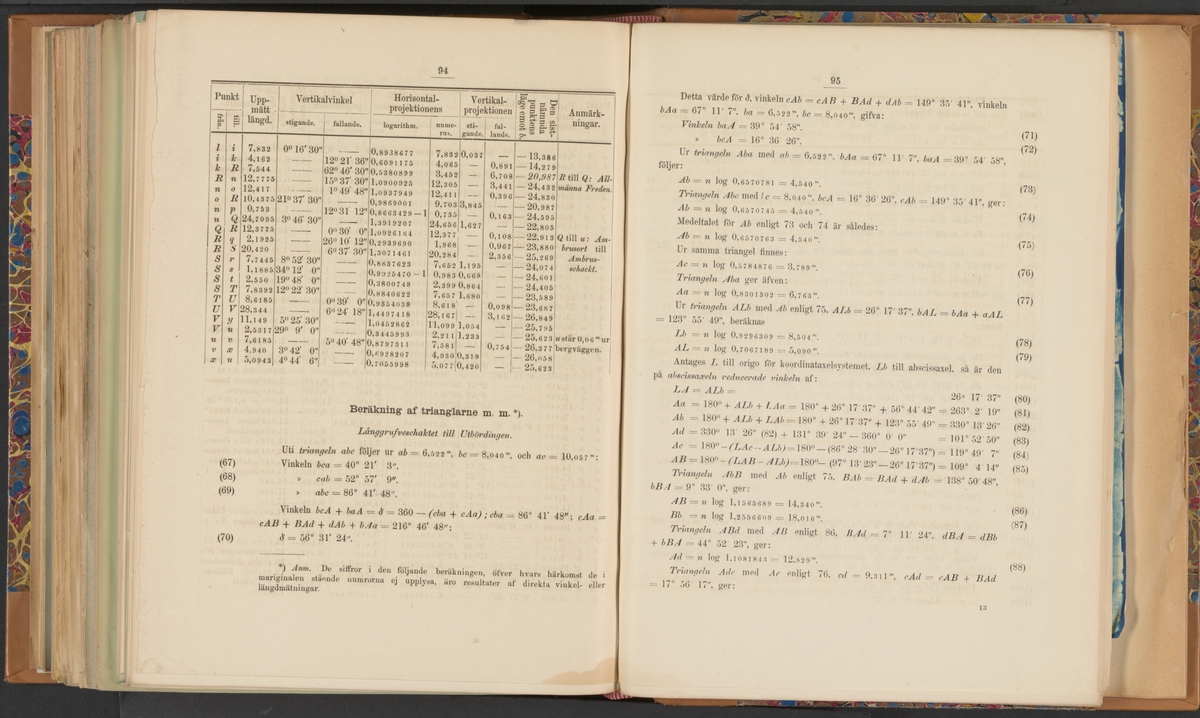 94
Punkt Upp-mätt längd. Vertikalvinkel Horisontal-projektionens Vertikal-projektionen Den sist-nämnda punktens läge emot b. Anmärk-ningar.
från. till. stigande. fallande. logarithm. nume-rus. sti-gande. fal-lande.
l i 7,832 0° 16' 30" — 0,8938677 7,832 0,037 — — 13,386
i k 4,162 — 12° 21' 36" 0,6091175 4,065 — 0,891 — 14,279
k R 7,544 — 62° 46' 30" 0,5380899 3,452 — 6,708 — 20,987 R till Q: All-
R n 12,7775 — 15° 37' 30" 1,0900925 12,305 — 3,441 — 24,432 männa Freden.
n o 12,417 — 1° 49' 48" 1,0937949 12,411 — 0,396 — 24,830
o R 10,4375 21° 37' 30" — 0,9869001 9,703 3,845 — — 20,987
n p 0,753 — 12° 31' 12" 0,8663429—1 0,735 — 0,163 — 24,595
n Q 24,7095 3° 46' 30" — 1,3919207 24,656 1,627 — — 22,805
Q R 12,3775 — 0° 30' 0" 1,0926164 12,377 — 0,108 — 22,913 Q till u: Am-
R q 2,1925 — 26° 10' 12" 0,2939690 1,968 — 0,967 — 23,880 brusort till
R S 20,420 — 6° 37' 30" 1,3071461 20,284 — 2,356 — 25,269 Ambrus-
S r 7,7445 8° 52' 30" — 0,8837623 7,652 1,195 — — 24,074 schackt.
S s 1,1885 34° 12' 0" — 0,9925470—1 0,983 0,668 — — 24,601
S t 2,550 19° 48' 0" — 0,3800748 2,399 0,864 — — 24,405
S T 7,8392 12° 22' 30" — 0,8840622 7,657 1,680 — — 23,589
T U 8,6185 — 0° 39' 0" 0,9354038 8,618 — 0,098 — 23,687
U V 28,344 — 6° 24' 18" 1,4497418 28,167 — 3,162 — 26,849
V y 11,149 5° 25' 30" — 1,0452862 11,099 1,054 — — 25,795
V u 2,5317 29° 9' 0" — 0,3445993 2,211 1,233 — — 25,623 u står 0,06 m ur
u v 7,6185 — 5° 40' 48" 0,8797311 7,581 — 0,754 — 26,377 bergväggen.
v x 4,940 3° 42' 0" — 0,6928207 4,930 0,319 — — 26,058
x u 5,0943 4° 44' 6" — 0,7055998 5,077 0,420 — — 25,623
Beräkning af trianglarne m. m. *).
Långgrufveschaktet till Utbördingen.
Uti triangeln abc följer ur ab = 6,522 m, bc = 8,040 m, och ac = 10,057 m:
(67) Vinkeln bca = 40° 21' 3".
(68) » cab = 52° 57' 9".
(69) » abc = 86° 41' 48".
Vinkeln bcA + baA = δ = 360 — (cba + cAa); cba = 86° 41' 48"; cAa =
cAB + BAd + dAb + bAa = 216° 46' 48";
(70) δ = 56° 31' 24".
*) Anm. De siffror i den följande beräkningen, öfver hvars härkomst de i
marginalen stående numrorna ej upplysa, äro resultater af direkta vinkel- eller
längdmätningar.
95
Detta värde för δ, vinkeln cAb = cAB + BAd + dAb = 149° 35' 41", vinkeln
bAa = 67° 11' 7", ba = 6,522 m, bc = 8,040 m, gifva:
Vinkeln baA = 39° 54' 58". (71)
» bcA = 16° 36' 26". (72)
Ur triangeln Aba med ab = 6,522 m, bAa = 67° 11' 7", baA = 39° 54' 58",
följer:
Ab = n log 0,6570781 = 4,540 m. (73)
Triangeln Abc med bc = 8,040 m, bcA = 16° 36' 26", cAb = 149° 35' 41", ger:
Ab = n log 0,6570745 = 4,540 m. (74)
Medeltalet för Ab enligt 73 och 74 är således:
Ab = n log 0,6570763 = 4,540 m. (75)
Ur samma triangel finnes:
Ac = n log 0,5784876 = 3,789 m. (76)
Triangeln Aba ger äfven:
Aa = n log 0,8301302 = 6,763 m. (77)
Ur triangeln ALb med Ab enligt 75, ALb = 26° 17' 37", bAL = bAa + aAL
= 123° 55' 49", beräknas
Lb = n log 0,9296309 = 8,504 m. (78)
AL = n log 0,7067189 = 5,090 m. (79)
Antages L till origo för koordinataxelsystemet, Lb till abscissaxel, så är den
på abscissaxeln reducerade vinkeln af:
LA = ALb = 26° 17' 37" (80)
Aa = 180° + ALb + LAa = 180° + 26° 17' 37" + 56° 44' 42" = 263° 2' 19" (81)
Ab = 180° + ALb + LAb = 180° + 26° 17' 37" + 123° 55' 49" = 330° 13' 26" (82)
Ad = 330° 13' 26" (82) + 131° 39' 24" — 360° 0' 0" = 101° 52' 50" (83)
Ac = 180° — (LAc — ALb) = 180° — (86° 28' 30" — 26° 17' 37") = 119° 49' 7" (84)
AB = 180° — (LAB — ALb) = 180° — (97° 13' 23" — 26° 17' 37") = 109° 4' 14" (85)
Triangeln AbB med Ab enligt 75, BAb = BAd + dAb = 138° 50' 48",
bBA = 9° 33' 0", ger:
AB = n log 1,1565689 = 14,340 m. (86)
Bb = n log 1,2556609 = 18,016 m. (87)
Triangeln ABd med AB enligt 86, BAd = 7° 11' 24", dBA = dBb
+ bBA = 44° 52' 23", ger:
Ad = n log 1,1081843 = 12,829 m. (88)
Triangeln Adc med Ac enligt 76, cd = 9,311 m, cAd = cAB + BAd
= 17° 56' 17", ger:
13